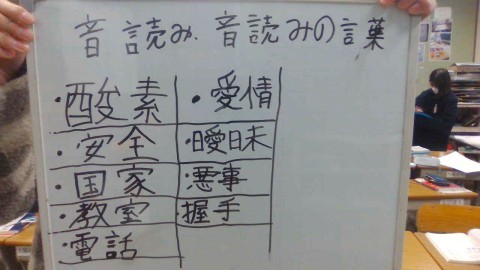 音読み、音読みの言葉
・酸素
・安全
・国家
・教室
・電話
・愛情
・曖昧
・悪事
・握手